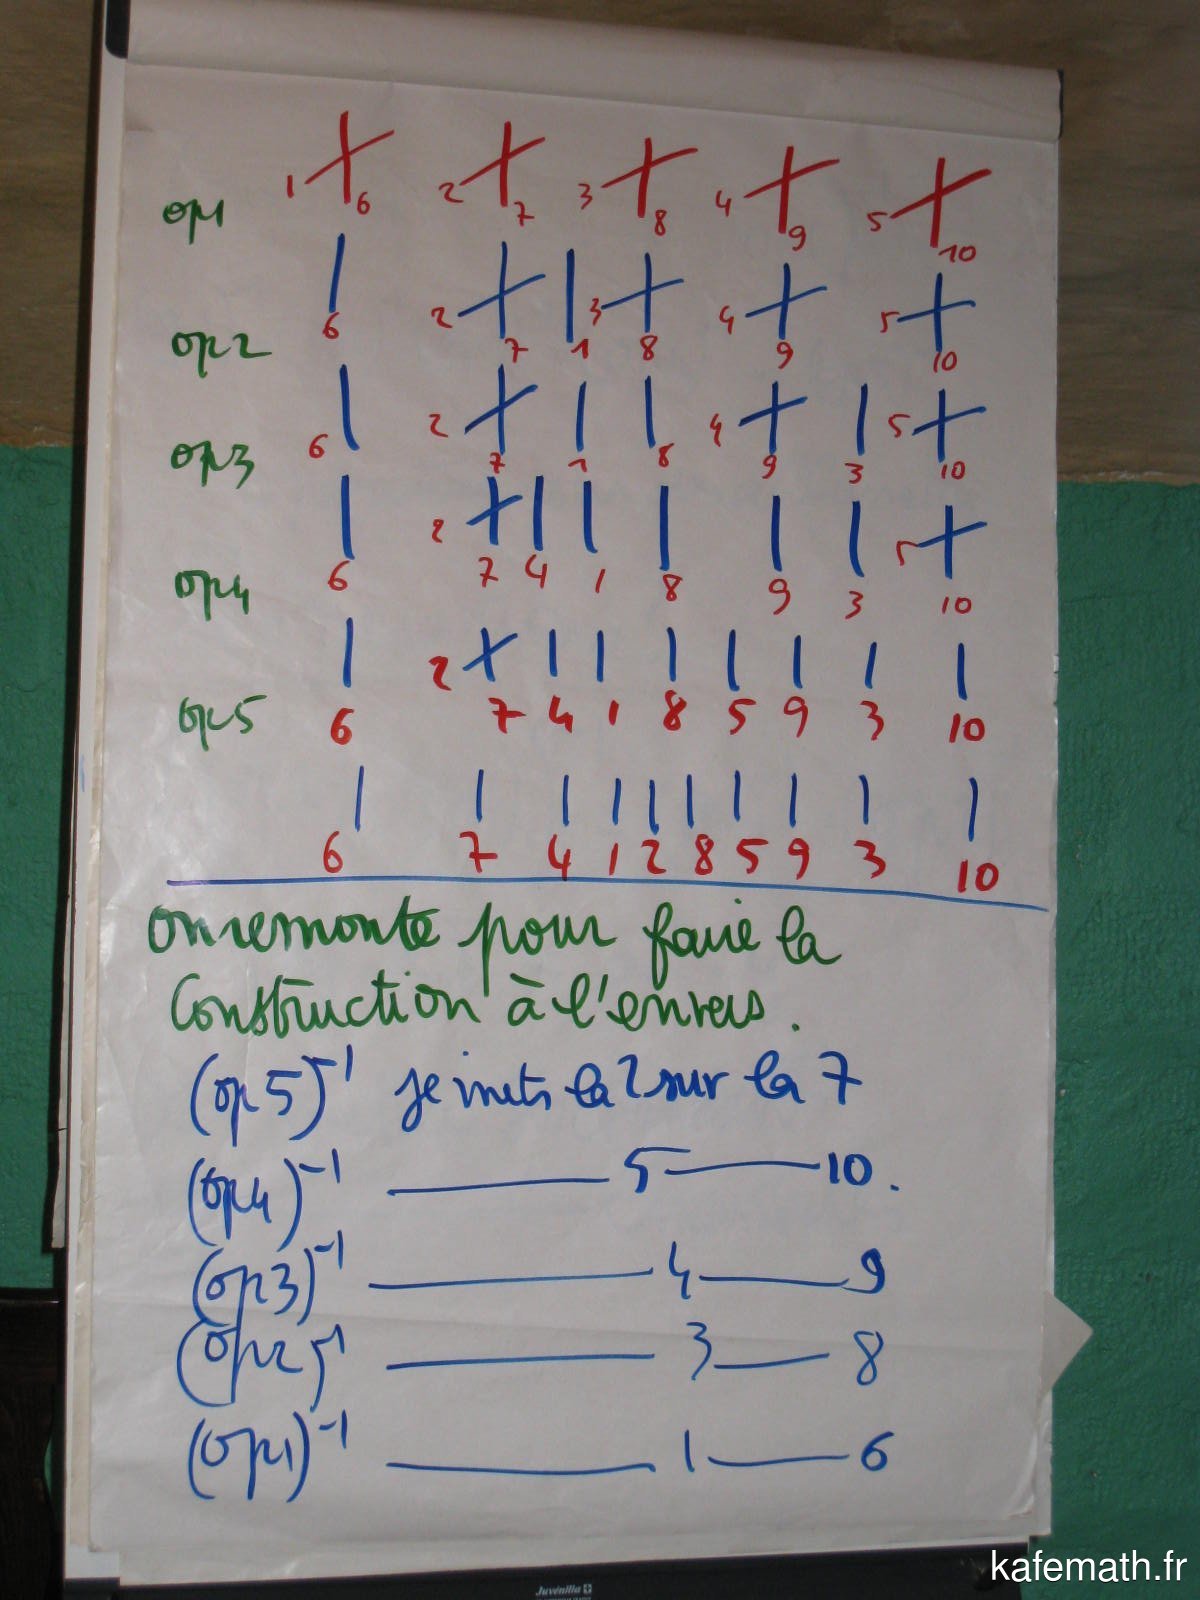 1 6 2 7 3 8 4 9 5 10
op1
6 2 7 1 3 8 4 9 5 10
op2
6 2 7 1 8 4 9 3 5 10
op3
6 2 7 4 1 8 9 3 5 10
op4
6 2 7 4 1 8 5 9 3 10
op5
6 7 4 1 2 8 5 9 3 10
on remonte pour faire la
Construction à l'envers.
(op5)⁻¹ je mets la 2 sur la 7
(op4)⁻¹ —— 5 —— 10.
(op3)⁻¹ —— 4 —— 9
(op2)⁻¹ —— 3 —— 8
(op1)⁻¹ —— 1 —— 6
Juvénilia
kafemath.fr